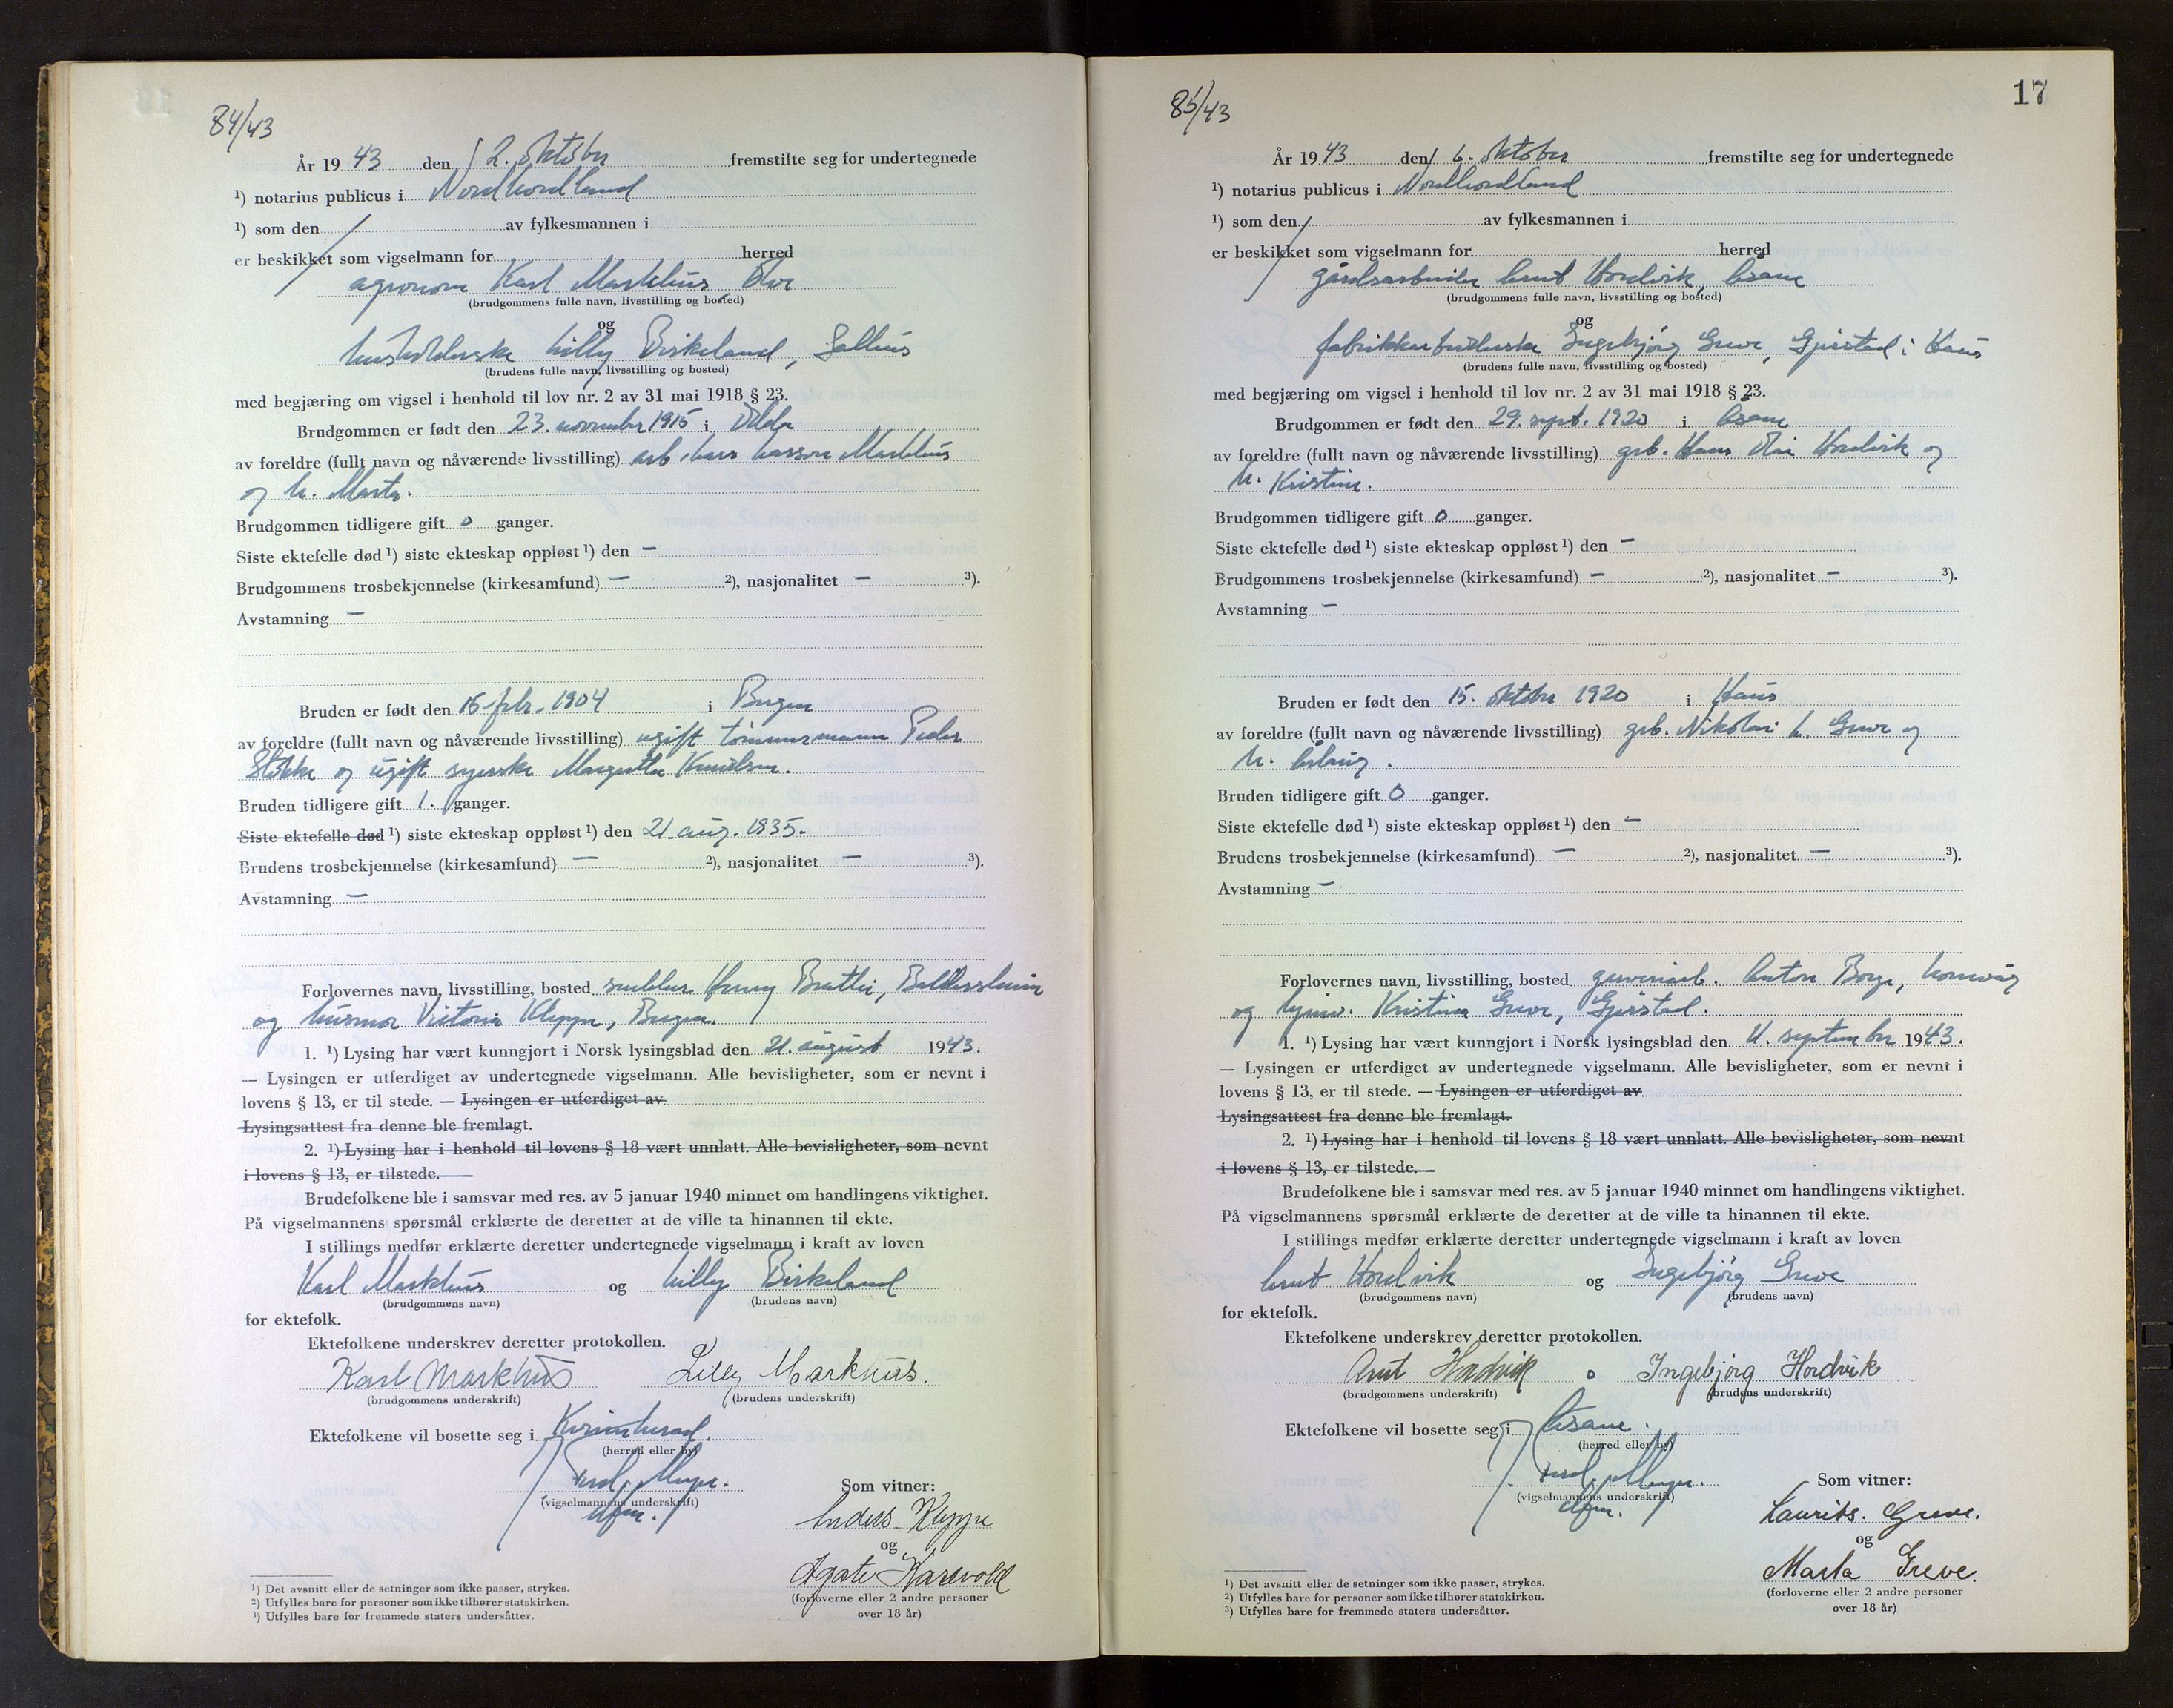 84/43
År 1943 den 2. oktober fremstilte seg for undertegnede
¹) notarius publicus i Nordhordland
¹) som den av fylkesmannen i
er beskikket som vigselmann for herred
agronom Karl Markhus, Ølve
(brudgommens fulle navn, livsstilling og bosted)
og
husholderske Lilly Birkeland, Salhus
(brudens fulle navn, livsstilling og bosted)
med begjæring om vigsel i henhold til lov nr. 2 av 31 mai 1918 § 23.
Brudgommen er født den 23. november 1915 i Odda
av foreldre (fullt navn og nåværende livsstilling) arb. Lars Larsson Markhus
og h. Marta.
Brudgommen tidligere gift 0 ganger.
Siste ektefelle død ¹) siste ekteskap oppløst ¹) den —
Brudgommens trosbekjennelse (kirkesamfund) — ²), nasjonalitet — ³).
Avstamning —
Bruden er født den 15 febr. 1904 i Bergen
av foreldre (fullt navn og nåværende livsstilling) ugift tömmermann Peder
Stokke og ugift syerske Margrethe Knudsen.
Bruden tidligere gift 1. ganger.
Siste ektefelle død ¹) siste ekteskap oppløst ¹) den 21. aug. 1935.
Brudens trosbekjennelse (kirkesamfund) — ²), nasjonalitet — ³).
Avstamning —
Forlovernes navn, livsstilling, bosted snekker Henry Brattli,
og husmor Victoria Kleppe, Bergen.
1. ¹) Lysing har vært kunngjort i Norsk lysingsblad den 21. august 1943.
— Lysingen er utferdiget av undertegnede vigselmann. Alle bevisligheter, som er nevnt i
lovens § 13, er til stede. — Lysingen er utferdiget av
Lysingsattest fra denne ble fremlagt.
2. ¹) Lysing har i henhold til lovens § 18 vært unnlatt. Alle bevisligheter, som nevnt
i lovens § 13, er tilstede. —
Brudefolkene ble i samsvar med res. av 5 januar 1940 minnet om handlingens viktighet.
På vigselmannens spørsmål erklærte de deretter at de ville ta hinannen til ekte.
I stillings medfør erklærte deretter undertegnede vigselmann i kraft av loven
Karl Markhus og Lilly Birkeland
(brudgommens navn) (brudens navn)
for ektefolk.
Ektefolkene underskrev deretter protokollen.
Karl Markhus Lilly Markhus.
(brudgommens underskrift) (brudens underskrift)
Ektefolkene vil bosette seg i Kvinnherad.
(herred eller by)
Ferd. Meyer.
(vigselmannens underskrift)
Som vitner:
Anders Kleppe
og
Agate Karevold
(forloverne eller 2 andre personer
over 18 år)
¹) Det avsnitt eller de setninger som ikke passer, strykes.
²) Utfylles bare for personer som ikke tilhører statskirken.
³) Utfylles bare for fremmede staters undersåtter.
85/43
17
År 1943 den 6. oktober fremstilte seg for undertegnede
¹) notarius publicus i Nordhordland
¹) som den av fylkesmannen i
er beskikket som vigselmann for herred
gårdsarbeider Arnt Hordvik, Åsane
(brudgommens fulle navn, livsstilling og bosted)
og
fabrikkarbeiderske Ingebjörg Greve, Gjerstad i Haus
(brudens fulle navn, livsstilling og bosted)
med begjæring om vigsel i henhold til lov nr. 2 av 31 mai 1918 § 23.
Brudgommen er født den 29. sept. 1920 i Åsane
av foreldre (fullt navn og nåværende livsstilling) grb. Hans Hordvik og
h. Kristine.
Brudgommen tidligere gift 0 ganger.
Siste ektefelle død ¹) siste ekteskap oppløst ¹) den —
Brudgommens trosbekjennelse (kirkesamfund) — ²), nasjonalitet — ³).
Avstamning —
Bruden er født den 15. oktober 1920 i Haus
av foreldre (fullt navn og nåværende livsstilling) grb. Nikolai L. Greve og
h. Åslaug.
Bruden tidligere gift 0 ganger.
Siste ektefelle død ¹) siste ekteskap oppløst ¹) den —
Brudens trosbekjennelse (kirkesamfund) — ²), nasjonalitet — ³).
Avstamning —
Forlovernes navn, livsstilling, bosted garveriarb. Anton Borge,
og Kristina Greve, Gjerstad.
1. ¹) Lysing har vært kunngjort i Norsk lysingsblad den 11. september 1943.
— Lysingen er utferdiget av undertegnede vigselmann. Alle bevisligheter, som er nevnt i
lovens § 13, er til stede. — Lysingen er utferdiget av
Lysingsattest fra denne ble fremlagt.
2. ¹) Lysing har i henhold til lovens § 18 vært unnlatt. Alle bevisligheter, som nevnt
i lovens § 13, er tilstede. —
Brudefolkene ble i samsvar med res. av 5 januar 1940 minnet om handlingens viktighet.
På vigselmannens spørsmål erklærte de deretter at de ville ta hinannen til ekte.
I stillings medfør erklærte deretter undertegnede vigselmann i kraft av loven
Arnt Hordvik og Ingebjörg Greve
(brudgommens navn) (brudens navn)
for ektefolk.
Ektefolkene underskrev deretter protokollen.
Arnt Hordvik o Ingebjörg Hordvik
(brudgommens underskrift) (brudens underskrift)
Ektefolkene vil bosette seg i Åsane.
(herred eller by)
Ferd. Meyer.
(vigselmannens underskrift)
Som vitner:
Laurits. Greve.
og
Marta Greve.
(forloverne eller 2 andre personer
over 18 år)
¹) Det avsnitt eller de setninger som ikke passer, strykes.
²) Utfylles bare for personer som ikke tilhører statskirken.
³) Utfylles bare for fremmede staters undersåtter.